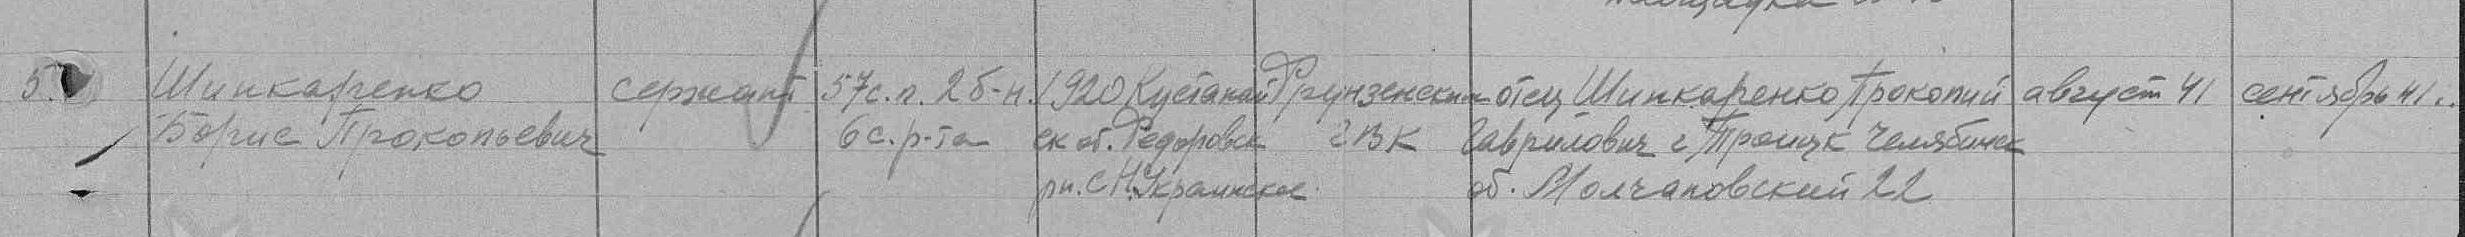 5. Шинкаренко сержант 57 с.п. 2 б-н. 1920 Кустанай Фрунзенским отец Шинкаренко Прокопий август 41 сентябрь 41..
Борис Прокопьевич 6 с. р-та ск об. Федоровск ГВК Гаврилович г Троицк Челябинск
рн. С Н.Украинское об. Молчановский 22